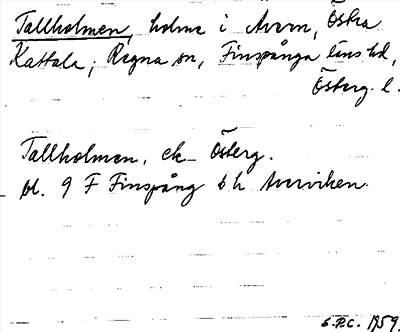 Tallholmen, holme i Avern, Östra
Kattala, Regna sn, Finspånga läns hd,
Österg. l.
Tallholmen, ek Österg.
bl. 9 F Finspång 6 h Averviken
S.P.C. 1959.